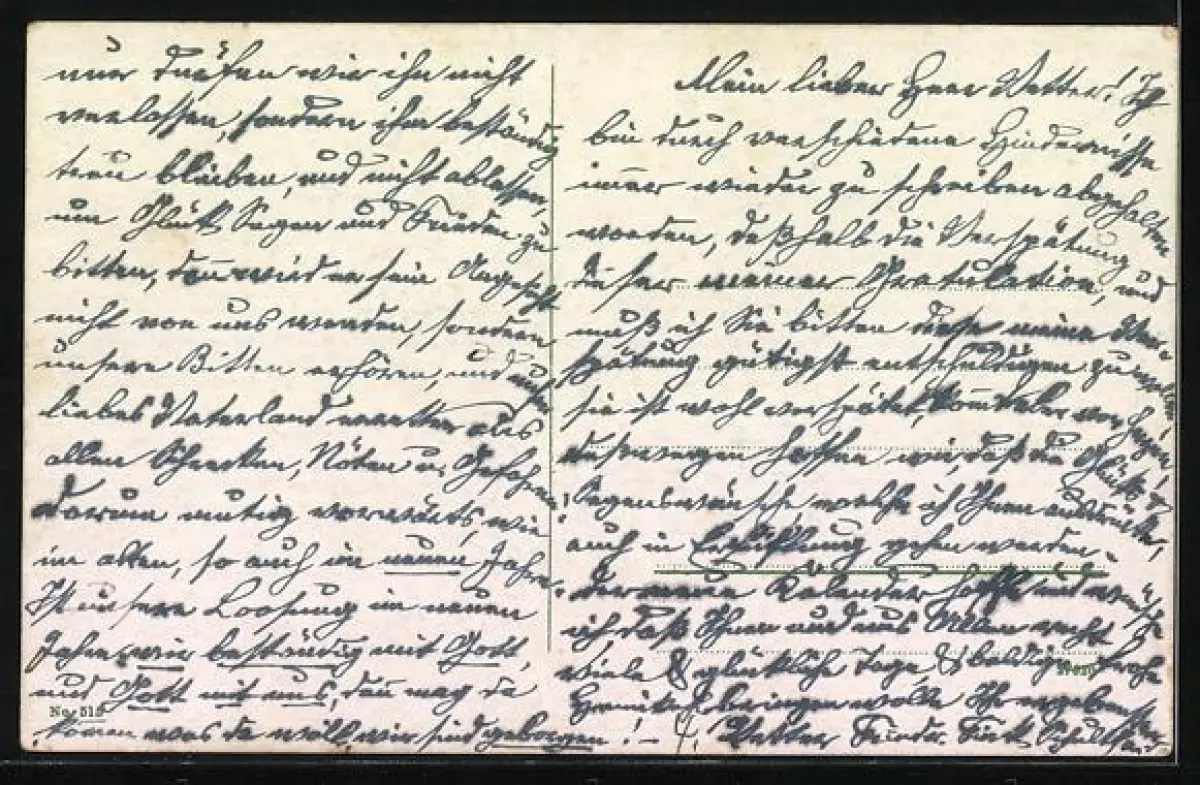 nur dürfen wir ihn nicht
verlassen, sondern ihm beständig
treu bleiben, und nicht ablassen,
um Glück Segen und Frieden zu
bitten, dann wird er sein Angesicht
nicht von uns wenden, sondern
unsere Bitten erhören, und unser
liebes Vaterland erretten aus
allen Schrecken, Nöten u. Gefahren!
Darum mutig vorwärts, wie
im alten, so auch im neuen Jahre.
Ist unsere Loosung im neuen
Jahre, wir beständig mit Gott,
und Gott mit uns, dann mag da
komen was da will, wir sind geborgen! –
No. 515
Mein lieber Herr Vetter! Ich
bin durch verschiedene Hindernisse
immer wieder zu schreiben abgehalten
worden, deßhalb die Verspätung
dieser meiner Gratulation, und
muß ich Sie bitten diese meine Ver-
spätung gütigst entschuldigen zu wollen,
sie ist wohl verspätet, komt aber von Herzen!
deßwegen hoffen wir, daß die Glück- &
Segenswünsche, welche ich Ihnen ausdrückte,
auch in Erfüllung gehen werden.
Der neue Kalender hoffe und wünsche
ich daß Ihnen und uns Allen recht
viele & glückliche Tage, & baldigen
bringen wolle Ihr ergebenster
Vetter Friedr.